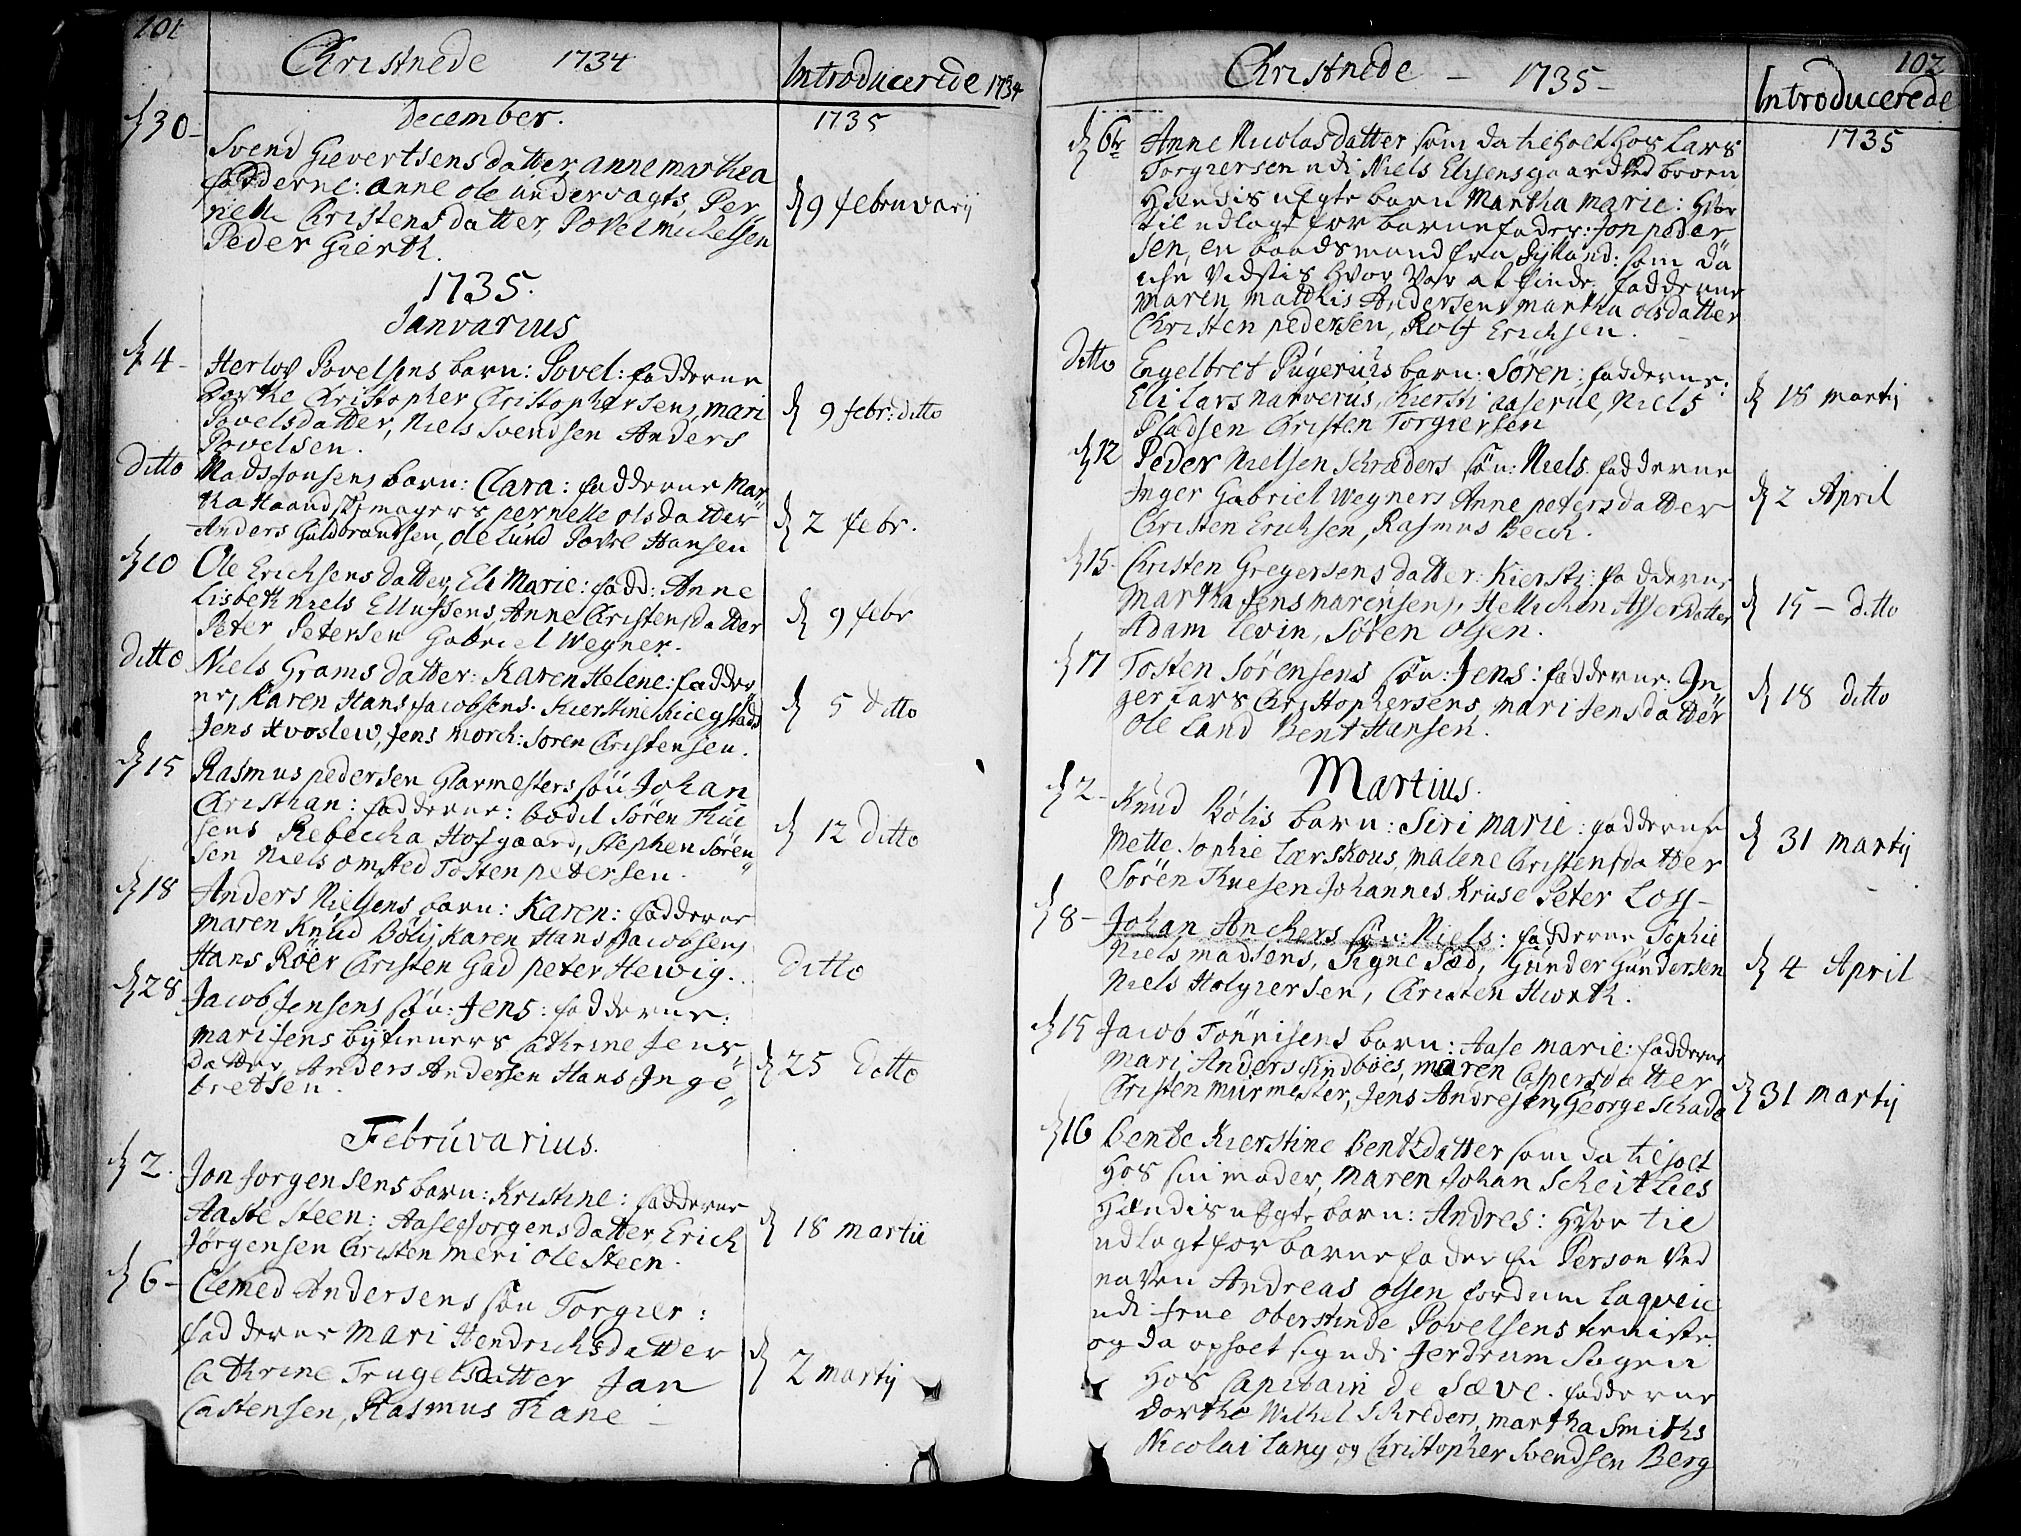 101
Christnede 1734
Introducerede 1734
December.
1735
d 30 -
Svend Gievertsens datter, anne marthea
fadderne: anne ole undervagts, Per
nelle Christens datter, Povel michelsen
Peder Gierth.
d 9 februvarij
1735.
Janvarius
d 4 -
Herlov Povelsens barn: Povel: fadderne
Dorthe Christopher Christophersens, mari
Povelsdatter, Niels Svendsen Anders
Povelsen.
d 9 febr: ditto
ditto
Mads Jonsens barn: Clara: fadderne Mar
tha Haandskemagers pernelle olsdatter
Anders Guldbrantsen, ole Lund Povel Hansen
d 2 febr.
d 10
Ole Erichsens datter, Eli Marie: fadd: Anne
Lisbeth Niels Ellufsens, Anne Christensdatter
Peter Petersen Gabriel Wegner.
d 9 febr
ditto
Niels Grams datter: Karen Helene: fadder
ne, Karen Hans Jacobsens. Kierstine Kiegstads
Jens Hvoslew, Jens Morch: Soren Christensen.
d 5 ditto
d 15
Rasmus pedersen Glarmesters søn Johan
Christian: fadderne: bodil Sören Thue
sens Rebeccha Hofgaard, Stephen Sören
sen Niels omsted Tosten petersen.
d 12 ditto
d 18
Anders Nielsens barn: Karen: fadderne
maren Knud Bölis, Karen Hans Jacobsens,
Hans Röer Christen Gad peter Hewig.
ditto
d 28
Jacob Jensens søn: Jens: fadderne:
mari Jens bytieners Cathrine Jens
datter, Anders Andersen Hans Inge
bretsen.
d 25 ditto
Februvarius.
d 2.
Jon Jorgensens barn: Kristine: fadderne
Aaste Steen: Aase Jorgensdatter Erich
Jørgensen Christen meri ole Steen.
d 18 martii
d 6 -
Clemed Andersens søn Torgier:
fadderne Mari Hendrichsdatter
Cathrine Trugelsdatter Jan
Castensen, Rasmus Thane -
d 2 martij
102
Christnede - 1735 -
Introducerede
1735
d 6te
Anne Nicolasdatter som da tilholt hos Lars
Torgiersen udi Niels Elisens gaard ved broen
Hændis uægte barn Martha Marie: Hvor
til udlagt for barnefader: Jon peder
sen, en baadsmand fra Jylland: som da
iche vidstis hvor var at finde, fadderne
maren matthis Andersens, martha olsdatter
Christen pedersen, Rolf Erichsen.
ditto
Engelbret Pügerüds barn: Søren: fadderne:
Eli Lars narverüs, Kiersti aaserüe, Niels
Pladsen Christen Torgiersen
d 18 martij
d 12
Peder Nielsen Skræders søn: Niels. fadderne
Inger Gabriel Wegners Anne petersdatter
Christen Erichsen, Rasmus Beck.
d 2 April
d 15.
Christen Gregersens datter: Kiersti: fadderne,
Martha Jens marensens, Hellichen Assersdatter
Adam Levin, Søren olsen.
d 15 - ditto
d 17
Tosten Sørensens søn: Jens: fadderne: In
ger Lars Christophersens, mari Jensdatter
ole Land Bent Hansen.
d 18 ditto
Martius.
d 2 -
Knud Bölis barn: Siri marie: fadderne
Mette Sophie Lærskous, malene Christensdatter
Søren Thuesen Johannes Kruse Peter Loss -
d 31 martij
d 8 -
Johan Anchers søn: Niels: fadderne, Sophie
Niels madsens, Signe Sæd, Gunder Gundersen
Niels Holgiersen, Christen Hiorth.
d 4 April
d 15
Jacob Tönnisens barn: Aase marie: fadderne
Mari Anders Sindböes, maren Caspersdatter
Christen murmester, Jens Andresen, George Schade
d 31 martij
d 16
Bente Kierstine Bentzdatter som da tilholt
hos sin moder, Maren Johan Scheitlies
Hændis uægte barn: Andres: Hvor til
udlagt for barnefader en Person ved
naven Andreas olsen fordum Laqveie
udi frue oberstinde Povelsens tieniste
og da opholt sig udi Jerdrum Sogen
hos Capitain de Sæve. fadderne
Dorthe Wilhel Schreders, martha Smiths
Nicolai Lang og Christopher Svendsen Berg